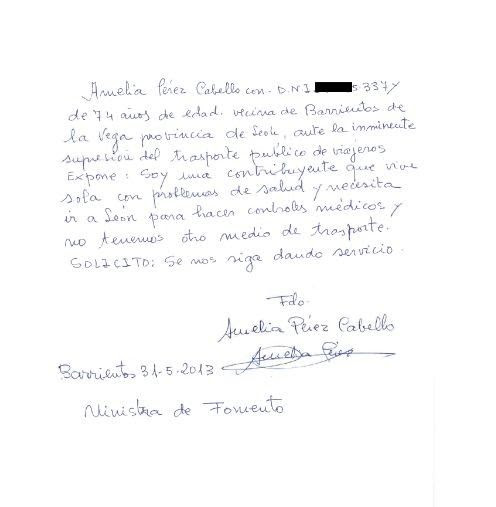 Amelia Pérez Cabello con D.N.I 5.337Y
de 74 años de edad. vecina de Barrientos de
la Vega provincia de León, ante la inminente
supresión del trasporte publico de viajeros
Expone: Soy una contribuyente que vive
sola con problemas de salud y necesita
ir a León para hacer controles médicos y
no tenemos otro medio de trasporte.
SOLICITO: Se nos siga dando servicio.
Fdo.
Amelia Pérez Cabello
Amelia Pérez
Barrientos 31-5-2013
Ministra de Fomento